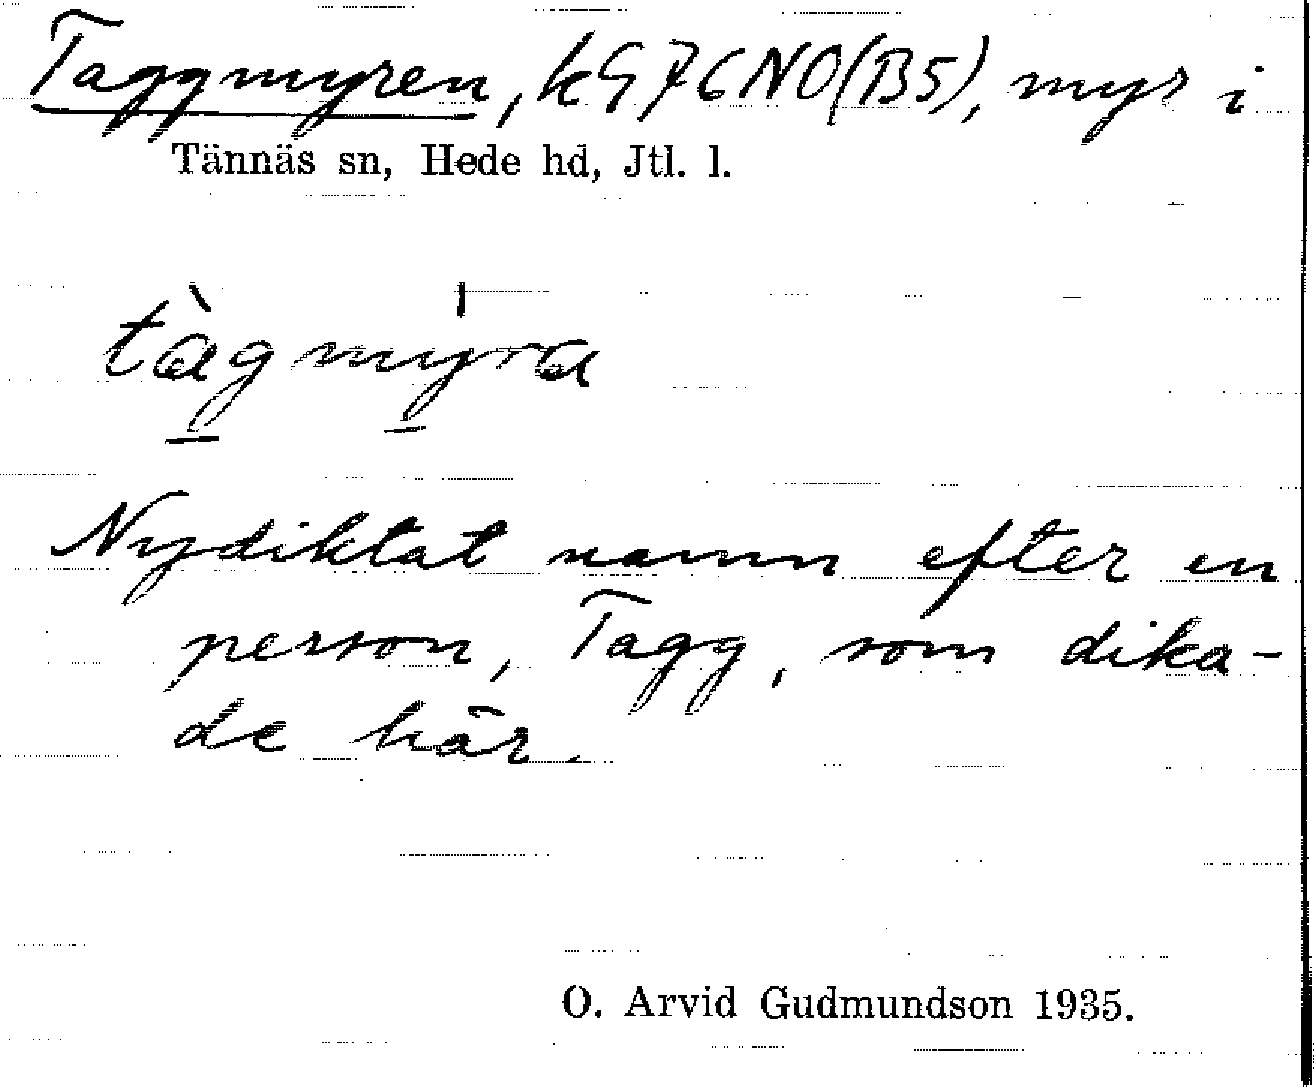 Taggmyren, kG76NO(B5), myr i
Tännäs sn, Hede hd, Jtl. l.
tàgmyra
Nydiktat namn efter en
person, Tagg, som dika-
de här.
O. Arvid Gudmundson 1935.